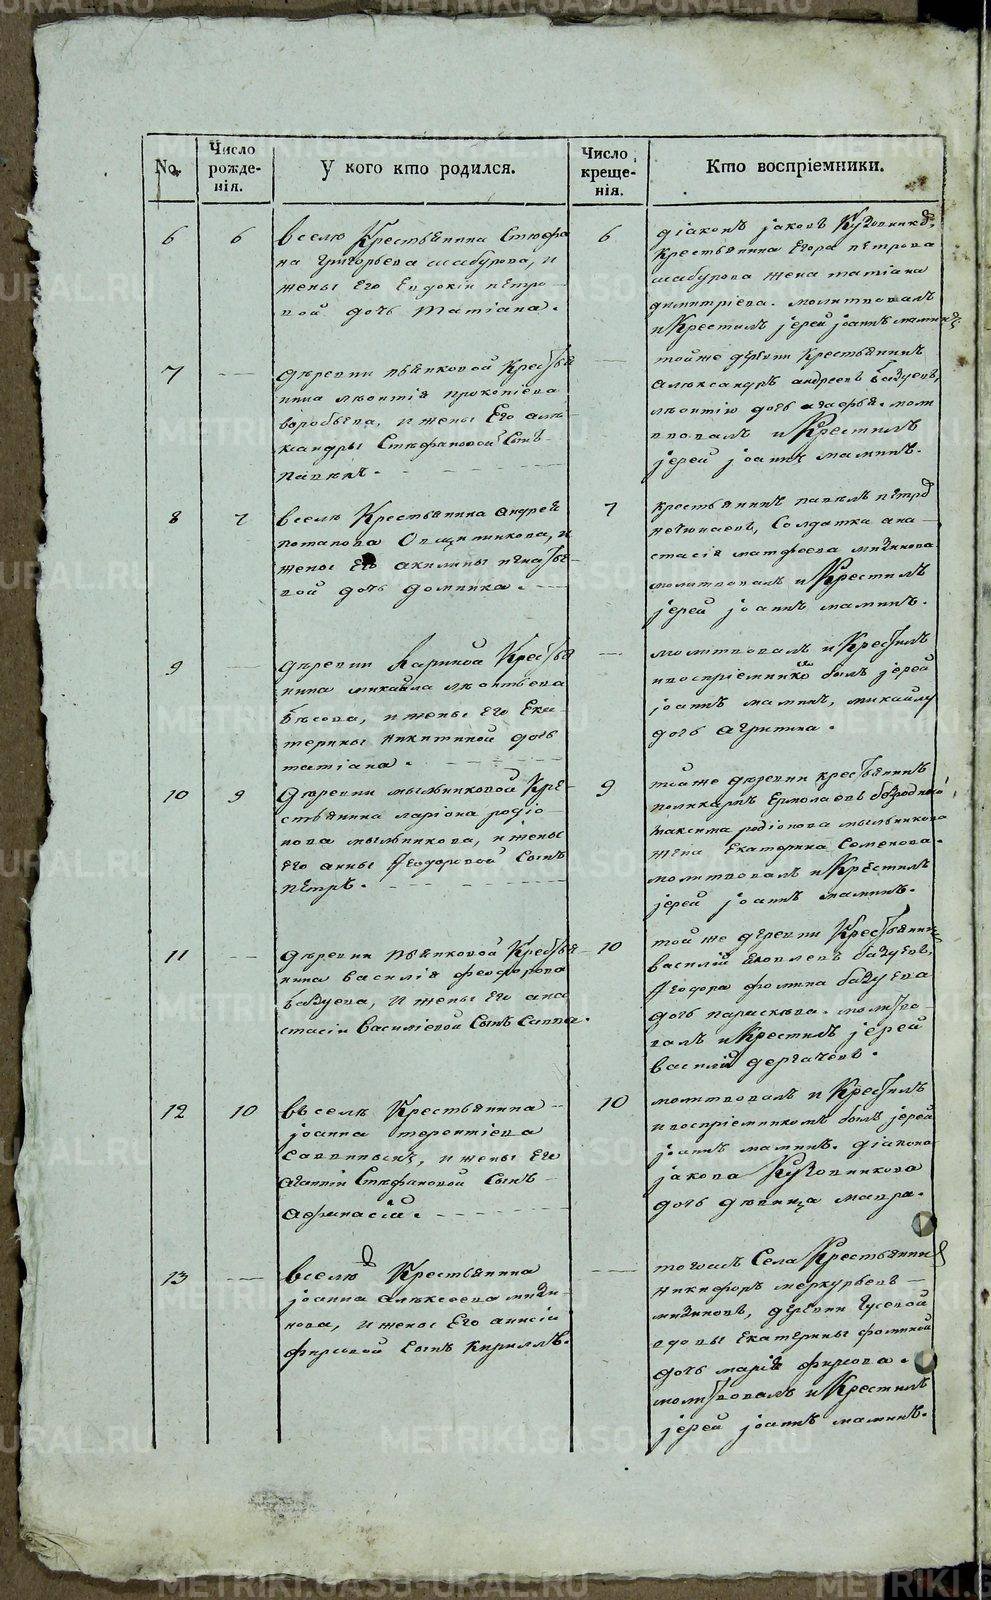 No.
Число рожде-нія.
У кого кто родился.
Число креще-нія.
Кто воспріемники.
6
6
в селѣ Крестьянина Стефа
на Григорьева шабурова, и
жены Его Евдокіи петро
вой дочь татіана.
6
діаконъ јаковъ Кузовников,
крестьянина Егора петрова
шабурова жена татіана
димитріева. молитвовалъ
и Крестилъ јерей јоаннъ маминъ
7
деревни пьянковой Кресть
нина леонтія прокопіева
воробьева, и жены Его алек
сандры Стефановой Сынъ
павелъ.
той же деревни Крестьянинъ
александръ андреевъ базуевъ,
леонтію дочь агафья. молит
вовалъ и Крестилъ
јерей јоаннъ маминъ.
8
7
в селѣ Крестьянина андрея
потапова Овчинникова, и
жены Его акилины игнатье
вой дочь домника.
7
крестьянинъ павелъ петров
Солдатка ана
стасія матфеева мизинова
молитвовалъ и Крестилъ
јерей јоаннъ маминъ.
9
деревни Крестья
нина михаила леонтьева
бѣсова, и жены Его Ека
терины никитиной дочь
татіана.
молитвовалъ и Крестилъ
и воспріемникомъ былъ јерей
јоаннъ маминъ, михаилу
дочь агрипина.
10
9
деревни мыльниковой Кре
стьянина ларіона родіо
нова мыльникова, и жены
его анны Феодоровой Сынъ
петръ.
9
той же деревни крестьянинъ
поликарпъ Ермолаевъ
максима родіонова мыльникова
жена Екатерина Семенова.
молитвовалъ и Крестилъ
јерей јоаннъ маминъ.
11
деревни пьянковой Кресть
нина василія феодорова
базуева, и жены Его ана
стасіи василіевой Сынъ Савва.
10
той же деревни Крестьянинъ
василій яковлевъ базуевъ,
Феодора фомина базуева
дочь параскева. молитво
валъ и Крестилъ јерей
василій дергачевъ.
12
10
в селѣ Крестьянина
јоанна терентіева
и жены Его
агапіи Стефановой Сынъ
афанасій.
10
молитвовалъ и Крестилъ
и воспріемникомъ былъ јерей
јоаннъ маминъ. діакона
јакова Кузовникова
дочь девица мавра.
13
в селѣ Крестьянина
јоанна алексеева мизи
нова, и жены Его анисіи
фирсовой Сынъ Кириллъ.
тогожъ Села Крестьянинъ
никифоръ меркурьевъ
мизиновъ, деревни Гусевой
вдовы Екатерины фоминой
дочь марія фирсова.
молитвовалъ и Крестилъ
јерей јоаннъ маминъ.
METRIKI.GASO-URAL.RU